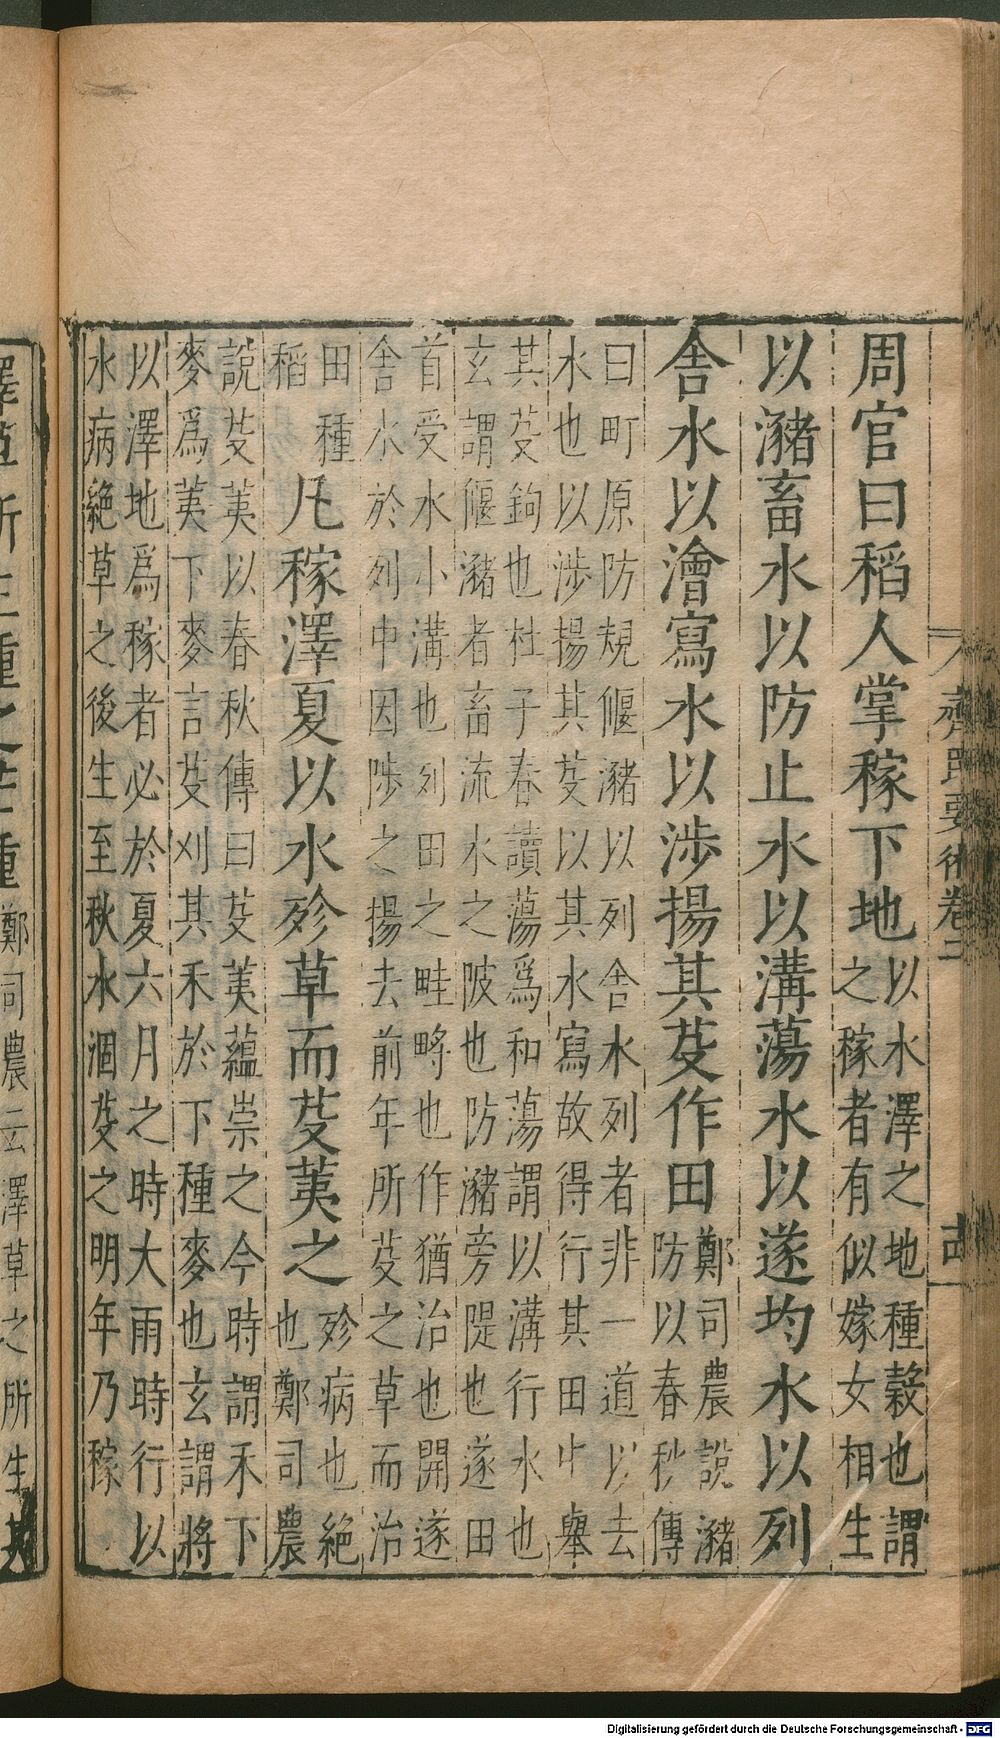 齊民要術卷二
周官曰稻人掌稼下地
以水澤之地種穀也謂
之稼者有似嫁女相生
以瀦畜水以防止水以溝蕩水以遂均水以列
舍水以澮寫水以涉揚其芟作田
鄭司農說瀦
防以春秋傳
曰町原防規偃瀦以列舍水列者非一道以去
水也以涉揚其芟以其水寫故得行其田中舉
其芟鉤也杜子春讀蕩爲和蕩謂以溝行水也
玄謂偃瀦者畜流水之陂也防瀦旁隄也遂田
首受水小溝也列田之畦㽟也作猶治也開遂
舍水於列中因陟之揚去前年所芟之草而治
田種
稻
凡稼澤夏以水殄草而芟荑之
殄病也絕
也鄭司農
說芟荑以春秋傳曰芟荑蘊崇之今時謂禾下
麥爲荑下麥言芟刈其禾於下種麥也玄謂將
以澤地爲稼者必於夏六月之時大雨時行以
水病絕草之後生至秋水涸芟之明年乃稼
澤草所生種之芒種
鄭司農云澤草之所生其
Digitalisierung gefördert durch die Deutsche Forschungsgemeinschaft - DFG